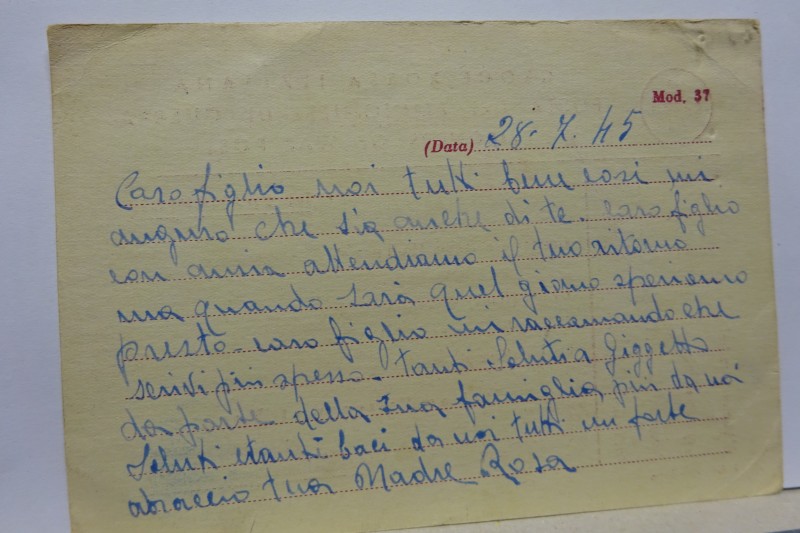 Mod. 37
(Data) 28. 7. 45
Caro figlio noi tutti bene cosi mi
auguro che sia anche di te. caro figlio
con ansia attendiamo il tuo ritorno
ma quando sarà quel giorno speriamo
presto. caro figlio mi raccomando che
scrivi più spesso. tanti saluti a Giggetto
da parte della sua famiglia più da noi
saluti e tanti baci da noi tutti un forte
abraccio tua Madre Rosa